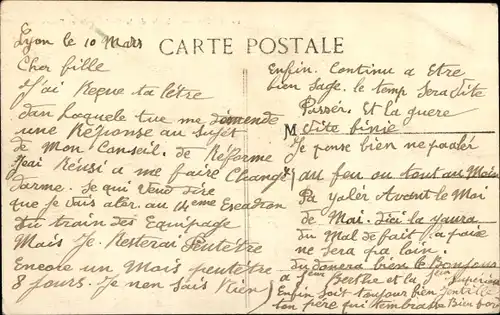 Lyon le 10 Mars
CARTE POSTALE
Cher fille
J'ai Reçue ta lêtre
dan Laquele tue me demende
une Réponse au sujet
de mon Conseil. de Réforme
J'ai Réusi a me faire Changé
darme. Je qui veud dire
que je vais aler au 14eme Escadron
Du train des Equipage
Mais Je Resterai Peutêtre
Encore un Mois peutêtre
8 jours. Je nen sais Rien
Enfin. Continu a Etre
bien sage. le temp sera vite
Passér. Et la guere
M vite finie
Je pense bien ne pa aler
au feu ou tout au Moin
Pa y aler Avant le Moi
de Mai. d'ici la y aura
du Mal de fait. la paix
ne Sera pa loin.
du donera bien le Bonjour
a Jem Berthe et la Supérieur
Enfin soit toujour bien Jentille
ton père qui tembrasse Bien for